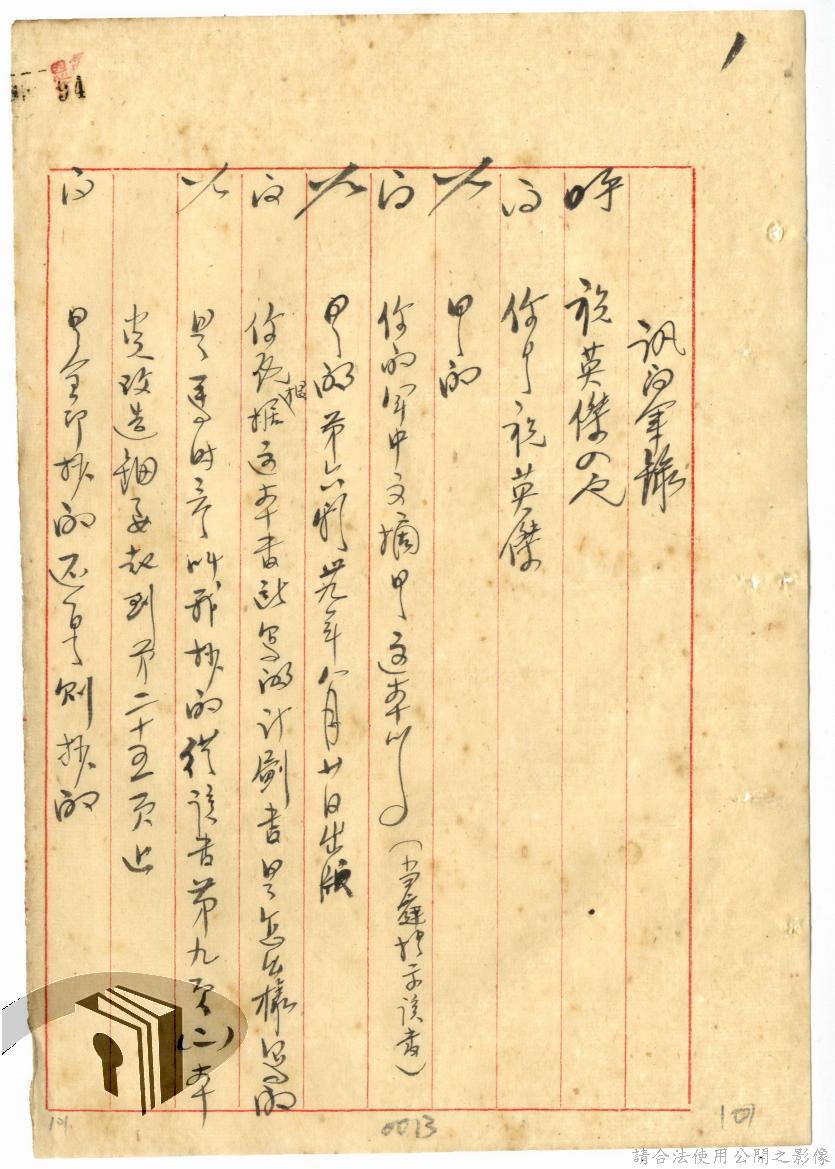 94
訊問筆錄
呼 祝英傑口巳
問 你是祝英傑
答 是的
問 你的軍中文摘是這本吧（當庭提示該書）
答 是的第六期卅九年八月廿日出版
問 你說根據這本書所寫的計劃書是怎么樣寫的
答 是馬時彥叫我抄的從該書第九頁（二）本
黨改造綱要起到第二十五頁止
問 是全部抄的还是刪抄的
0013
101
請合法使用公開之影像